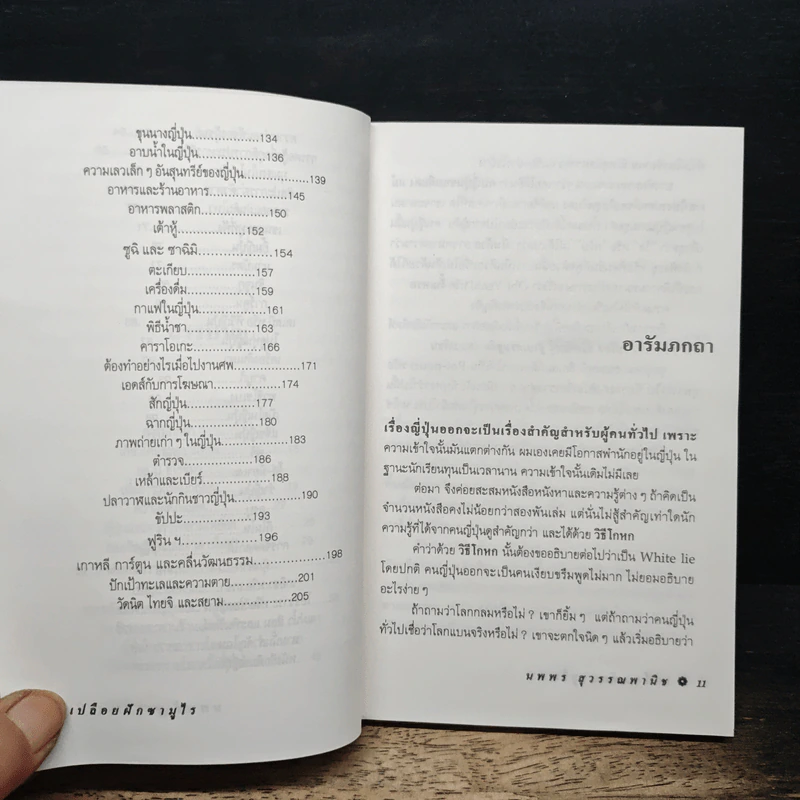 ขุนนางญี่ปุ่น...................134
อาบน้ำในญี่ปุ่น..................136
ความเลวเล็ก ๆ อันสุนทรีย์ของญี่ปุ่น..................139
อาหารและร้านอาหาร......................145
อาหารพลาสติก...................150
เต้าหู้...................152
ซูฉิ และ ซาฉิมิ....................154
ตะเกียบ....................157
เครื่องดื่ม....................159
กาแฟในญี่ปุ่น...................161
พิธีน้ำชา....................163
คาราโอเกะ...................166
ต้องทำอย่างไรเมื่อไปงานศพ...................171
เอดส์กับการโฆษณา...................174
สักญี่ปุ่น....................177
ฉากญี่ปุ่น....................180
ภาพถ่ายเก่า ๆ ในญี่ปุ่น...................183
ตำรวจ....................186
เหล้าและเบียร์...................188
ปลาวาฬและนักกินชาวญี่ปุ่น...................190
ขัปปะ...................193
ฟูริน ฯ...................196
เกาหลี การ์ตูน และคลื่นวัฒนธรรม...................198
ปักเป้าทะเลและความตาย...................201
วัดนิต ไทยจิ และสยาม...................205
เปลือยฝักซามูไร
อารัมภกถา
เรื่องญี่ปุ่นออกจะเป็นเรื่องสำคัญสำหรับผู้คนทั่วไป เพราะ
ความเข้าใจนั้นมันแตกต่างกัน ผมเองเคยมีโอกาสพำนักอยู่ในญี่ปุ่น ใน
ฐานะนักเรียนทุนเป็นเวลานาน ความเข้าใจนั้นเดิมไม่มีเลย
ต่อมา จึงค่อยสะสมหนังสือหนังหาและความรู้ต่าง ๆ ถ้าคิดเป็น
จำนวนหนังสือคงไม่น้อยกว่าสองพันเล่ม แต่นั่นไม่สู้สำคัญเท่าใดนัก
ความรู้ที่ได้จากคนญี่ปุ่นดูสำคัญกว่า และได้ด้วย วิธีโกหก
คำว่าด้วย วิธีโกหก นั้นต้องขออธิบายต่อไปว่าเป็น White lie
โดยปกติ คนญี่ปุ่นออกจะเป็นคนเงียบขรึมพูดไม่มาก ไม่ยอมอธิบาย
อะไรง่าย ๆ
ถ้าถามว่าโลกกลมหรือไม่ ? เขาก็ยิ้ม ๆ แต่ถ้าถามว่าคนญี่ปุ่น
ทั่วไปเชื่อว่าโลกแบนจริงหรือไม่ ? เขาจะตกใจนิด ๆ แล้วเริ่มอธิบายว่า
นพพร สุวรรณพานิช ❁ 11